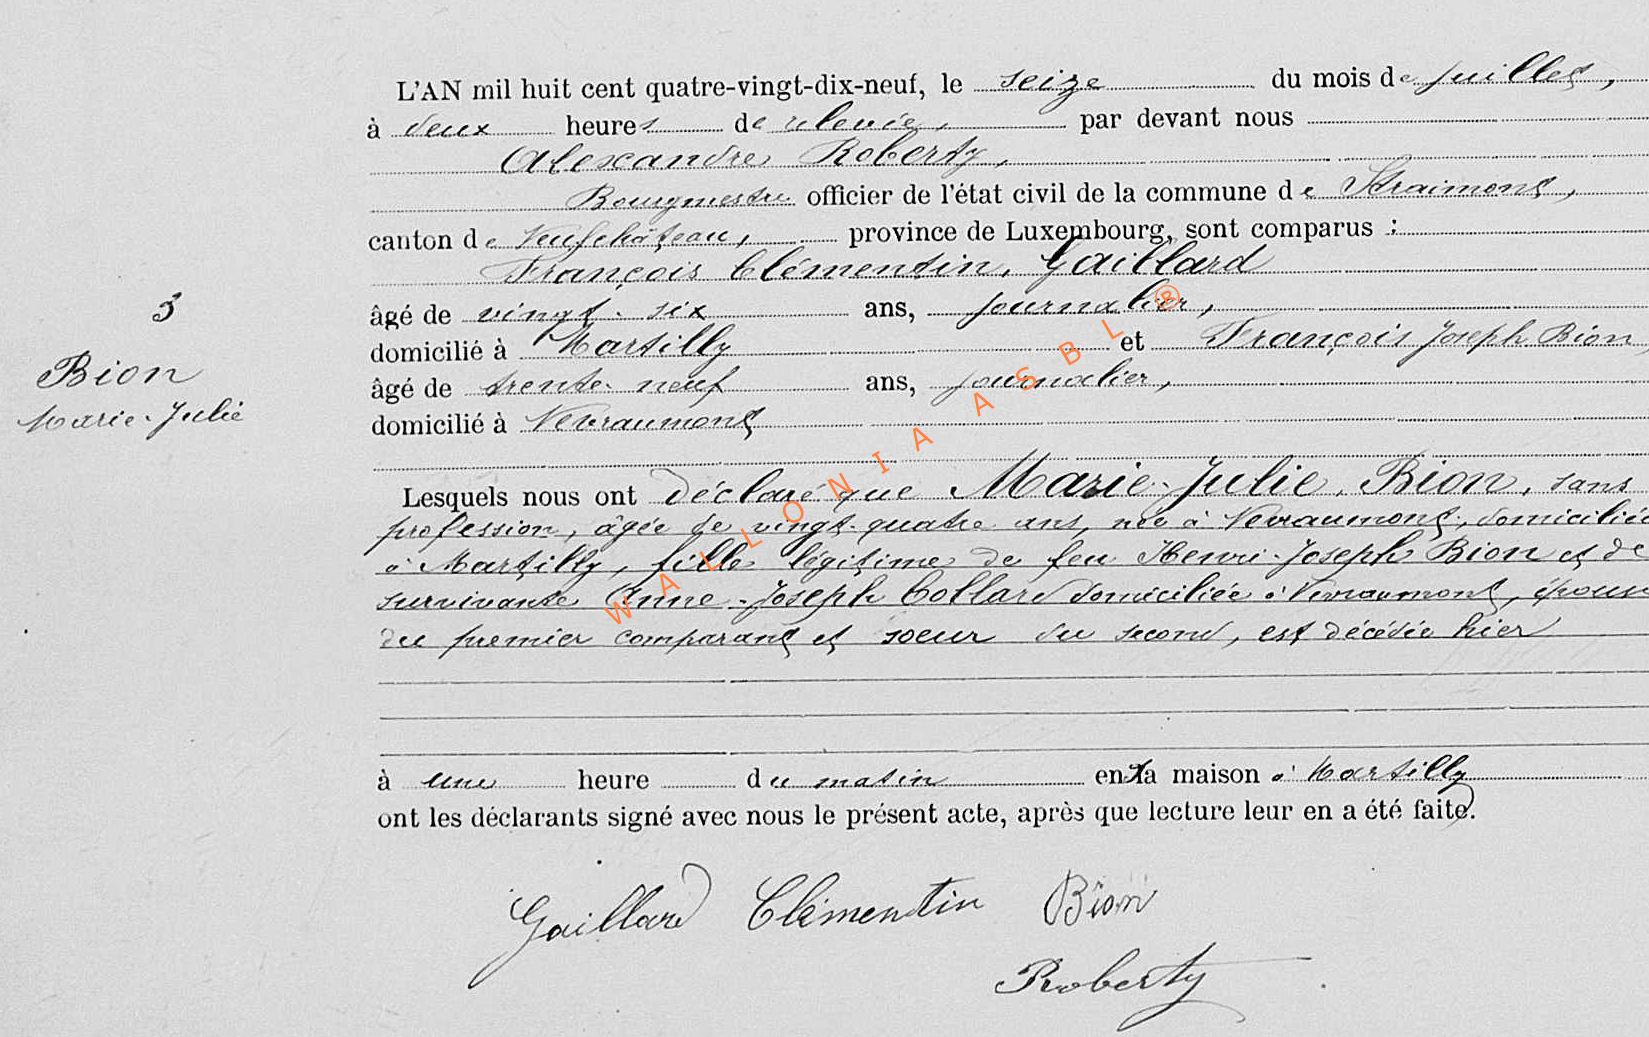 L'AN mil huit cent quatre-vingt-dix-neuf, le seize du mois de juillet,
à deux heures de relevée, par devant nous
Alexandre Roberty,
Bourgmestre officier de l'état civil de la commune de Straimont,
canton de Neufchâteau, province de Luxembourg, sont comparus :
François Clémentin, Gaillard
âgé de vingt-six ans, journalier,
domicilié à Martilly et François Joseph Bion
âgé de trente-neuf ans, journalier,
domicilié à Nevraumont
3
Bion
Marie-Julie
Lesquels nous ont déclaré que Marie-Julie, Bion, sans
profession, âgée de vingt-quatre ans, née à Nevraumont, domiciliée
à Martilly, fille légitime de feu Henri-Joseph Bion et de
survivante Anne-Joseph Collard domiciliée à Nevraumont, épouse
du premier comparant et soeur du second, est décédée hier
à une heure du matin en sa maison à Martilly
ont les déclarants signé avec nous le présent acte, après que lecture leur en a été faite.
Gaillard Clémentin Bion
Roberty
WALLONIA ASBL ®